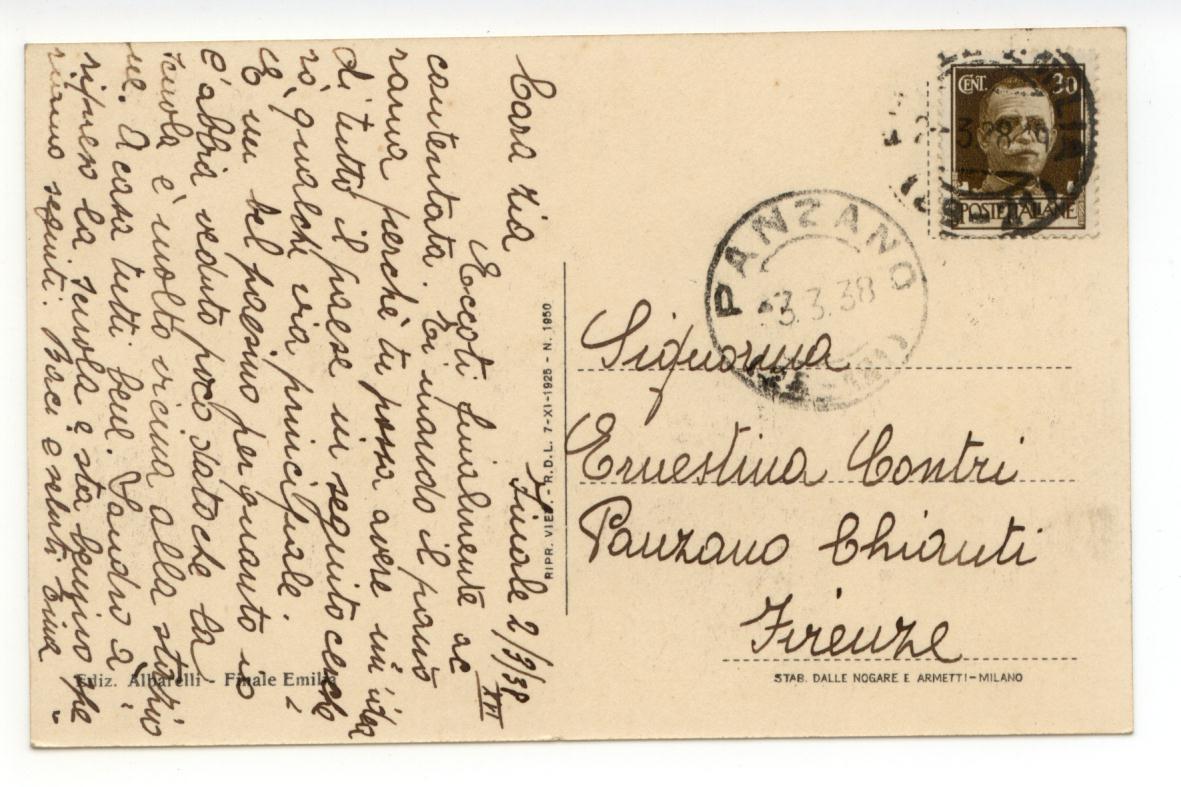 Finale 2/3/38
XVI
Cara Zia
Eccoti finalmente ac
contentata. Ti mando il pano
rama perchè tu possa avere un'idea
di tutto il paese in seguito cerche
rò qualche via principale.
E un bel paesino per quanto io
l'abbia veduto poco dato che la
scuola è molto vicina alla stazio
ne. A casa tutti bene. Sandro à
ripreso la scuola e sta benino spe
riamo seguiti. Baci e saluti Tina
Ediz. Albarelli - Finale Emilia
RIPR. VIET. - R.D.L. 7-XI-1925 - N. 1950
CENT. 30
POSTE ITALIANE
PANZANO
3.3.38
Signorina
Ernestina Contri
Panzano Chianti
Firenze
STAB. DALLE NOGARE E ARMETTI-MILANO